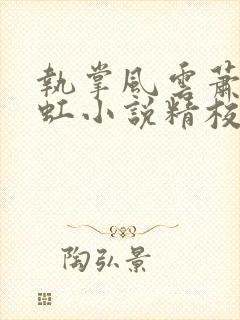 執掌風雲蕭
虹小說精校
陶弘景